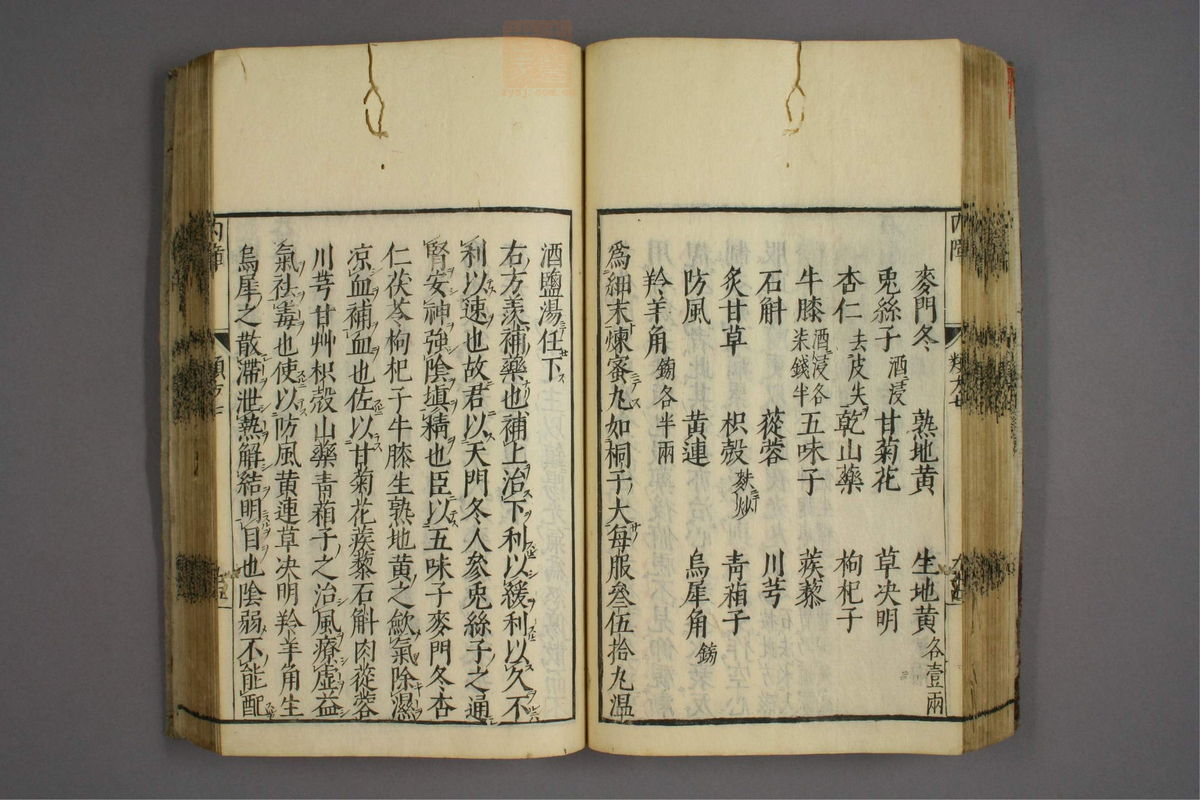 麥門冬 熟地黄 生地黄各壹兩
兎絲子酒浸 甘菊花 草决明
杏仁去皮失 乾山藥 枸杞子
牛膝酒浸各柒錢半 五味子 蒺藜
石斛 蓯蓉 川芎
炙甘草 枳殻麩炒 青葙子
防風 黄連 烏犀角鎊
羚羊角鎊各半兩
爲細末煉蜜丸如桐子大每服叄伍拾丸温
酒鹽湯任下
右方羡補藥也補上治下利以緩利以久不
利以速也故君以天門冬人參兎絲子之通
腎安神強陰塡精也臣以五味子麥門冬杏
仁茯苓枸杞子牛膝生熟地黄之歛氣除濕
凉血補血也佐以甘菊花蒺藜石斛肉蓯蓉
川芎甘艸枳殻山藥青葙子之治風療虚益
氣祛毒也使以防風黄連草决明羚羊角生
烏犀之散滯泄熱解結明目也陰弱不能配
内障